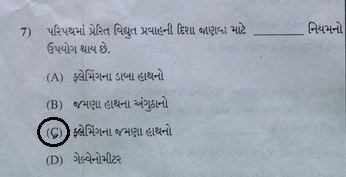 7) પરિપથમાં પ્રેરિત વિદ્યુત પ્રવાહની દિશા જાણવા માટે ________ નિયમનો
ઉપયોગ થાય છે.
(A) ફ્લેમિંગના ડાબા હાથનો
(B) જમણા હાથના અંગુઠાનો
(C) ફ્લેમિંગના જમણા હાથનો
(D) ગેલ્વેનોમીટર